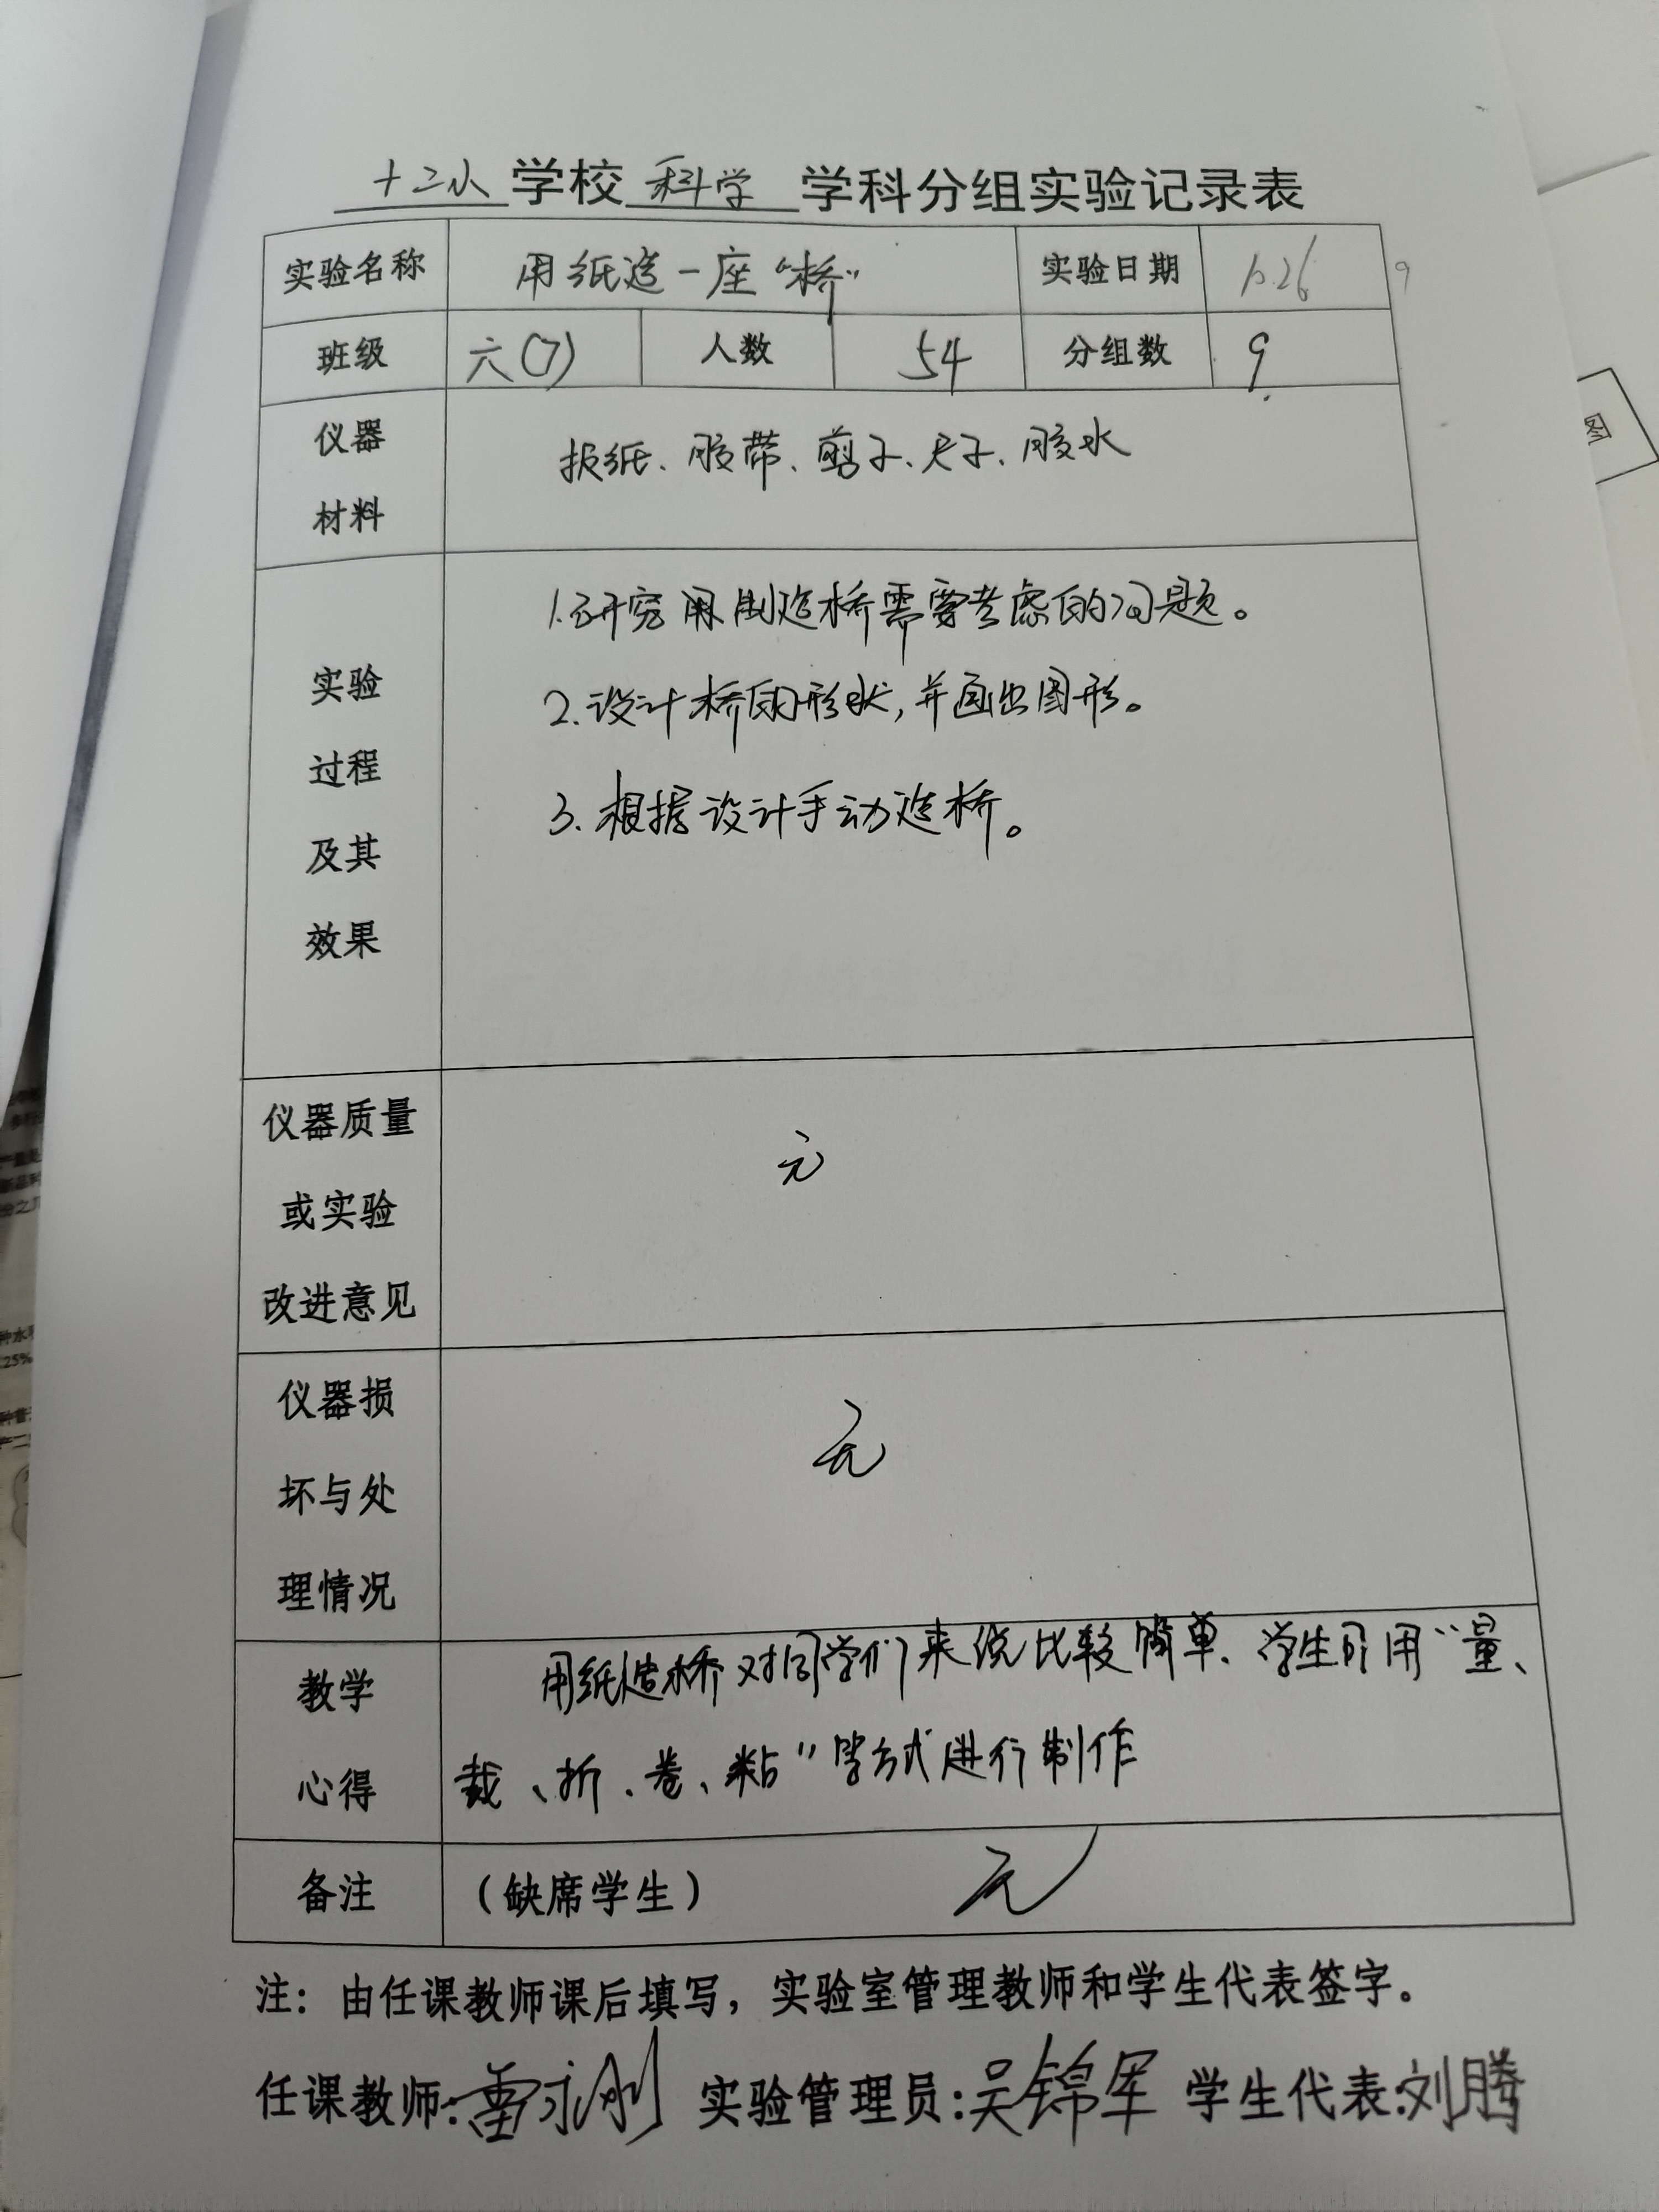 十二小学校科学学科分组实验记录表
实验名称 用纸造一座“桥” 实验日期 10.26 9
班级 六(7) 人数 54 分组数 9
仪器
材料
报纸、胶带、剪子、尺子、胶水
实验
过程
及其
效果
1.研究用制造桥需要考虑的问题。
2.设计桥的形状,并画出图形。
3.根据设计手动造桥。
仪器质量
或实验
改进意见
无
仪器损
坏与处
理情况
无
教学
心得
用纸造桥对同学们来说比较简单、学生可用“量、
裁、折、卷、粘”等方式进行制作
备注 (缺席学生) 无
注:由任课教师课后填写,实验室管理教师和学生代表签字。
任课教师:雷永刚 实验管理员:吴锦军 学生代表:刘腾
图